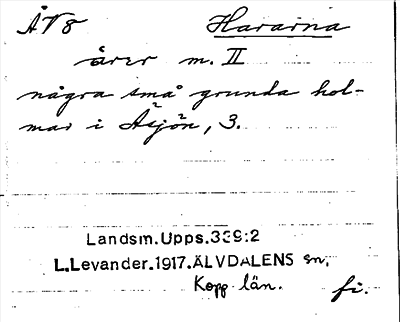 ÅV8 Hararna
årer m. II
några små grunda hol-
mar i Åsjön, 3.
Landsm.Upps.339:2
L.Levander.1917.ÄLVDALENS sn,
Kopp län. fi.